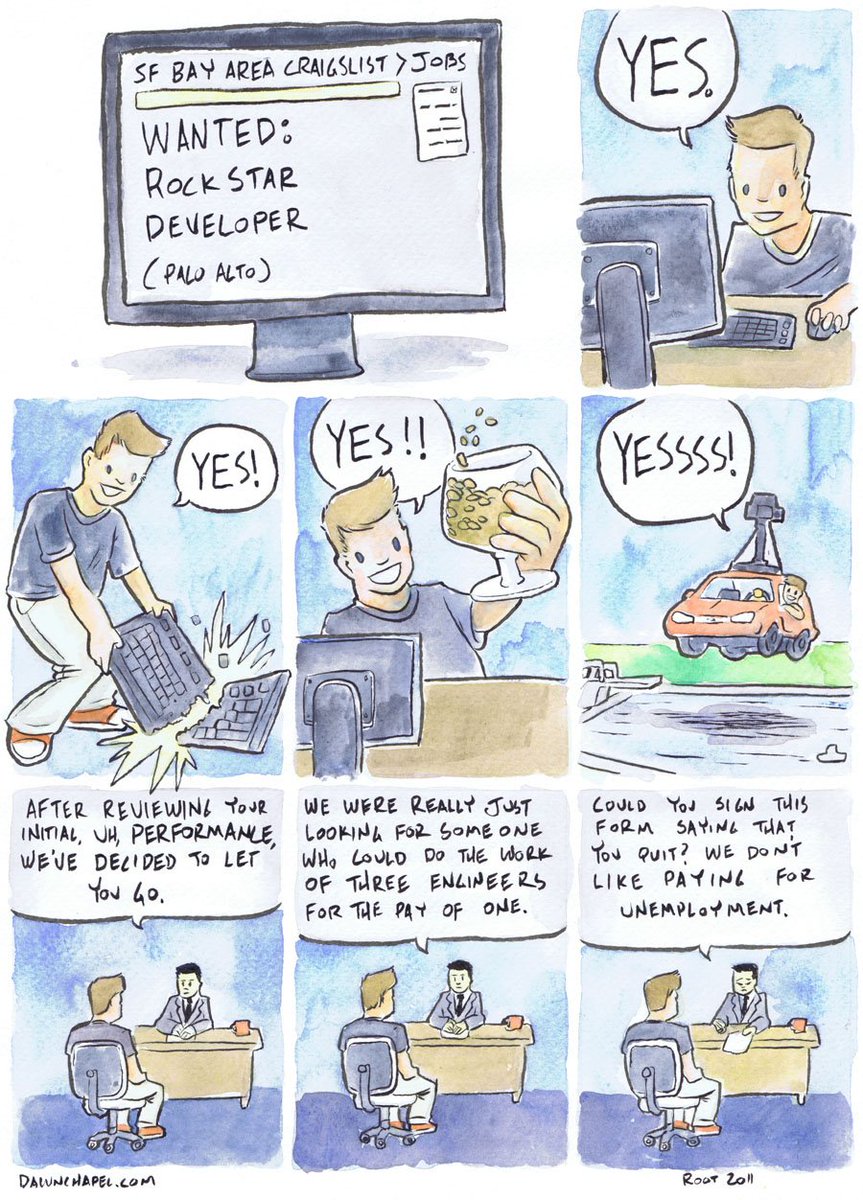 SF BAY AREA CRAIGSLIST > JOBS
WANTED:
ROCK STAR
DEVELOPER
(PALO ALTO)
YES.
YES!
YES!!
YESSSS!
AFTER REVIEWING YOUR
INITIAL, UH, PERFORMANCE,
WE'VE DECIDED TO LET
YOU GO.
WE WERE REALLY JUST
LOOKING FOR SOMEONE
WHO COULD DO THE WORK
OF THREE ENGINEERS
FOR THE PAY OF ONE.
COULD YOU SIGN THIS
FORM SAYING THAT
YOU QUIT? WE DON'T
LIKE PAYING FOR
UNEMPLOYMENT.
DALUNCHAPEL.COM
ROOT 2011